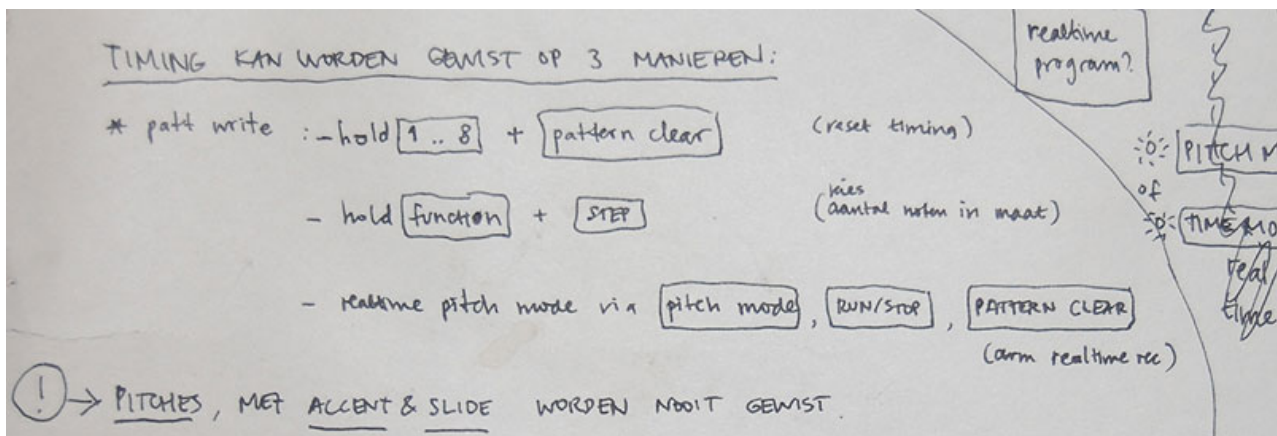 TIMING KAN WORDEN GEWIST OP 3 MANIEREN:
* patt write : - hold 1 .. 8 + pattern clear (reset timing)
- hold function + STEP (kies aantal noten in maat)
- realtime pitch mode via pitch mode, RUN/STOP, PATTERN CLEAR
(arm realtime rec)
! → PITCHES, MET ACCENT & SLIDE WORDEN NOOIT GEWIST.
realtime
program?
PITCH M
of
TIME MO
real
time